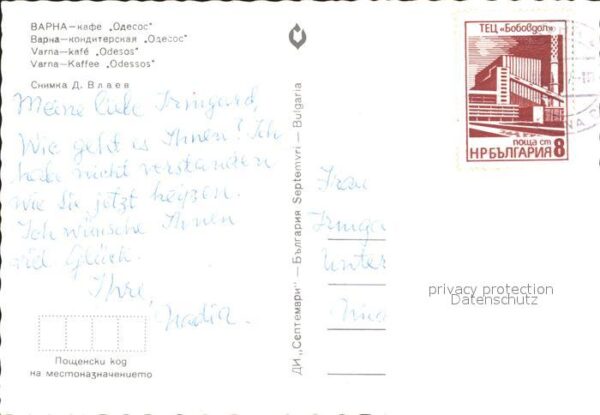 ВАРНА—кафе „Одесос"
Варна—кондитерская „Одесос"
Varna—kafé „Odesos"
Varna—Kaffee „Odessos"
Снимка Д. Влаев
Meine liebe Irmgard,
Wie geht es Ihnen? Ich
habe nicht verstanden
wie Sie jetzt heizen.
Ich wünsche Ihnen
viel Glück.
Ihre,
Nadia.
Пощенски код
на местоназначението
ДИ „Септемари" — България Septemvri — Bulgaria
ТЕЦ «Бобовдол»
поща ст
НР БЪЛГАРИЯ 8
Frau
Irmga
Unter
privacy protection
Datenschutz